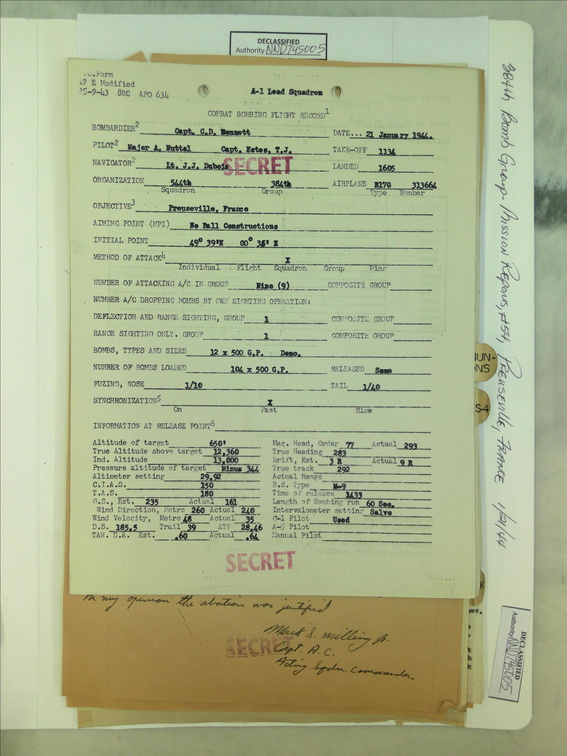 DECLASSIFIED
Authority NND745005
12 E Modified
25-9-43 8BC APO 634
A-1 Lead Squadron
COMBAT BOMBING FLIGHT RECORD1
BOMBARDIER2 Capt. C.D. Bennett DATE... 21 January 1944.
PILOT2 Major A. Nuttal Capt. Estes, T.J. TAKE-OFF 1134
NAVIGATOR2 Lt. J.J. Dubois LANDED 1605
SECRET
ORGANIZATION 544th 384th AIRPLANE B17G 313664
Squadron Group Type Number
OBJECTIVE3 Preuseville, France
AIMING POINT (MPI) No Ball Constructions
INITIAL POINT 49° 39'N 00° 36' E
METHOD OF ATTACK4 X
Individual Flight Squadron Group Wing
NUMBER OF ATTACKING A/C IN GROUP Nine (9) COMPOSITE GROUP
NUMBER A/C DROPPING BOMBS BY OWN SIGHTING OPERATION:
DEFLECTION AND RANGE SIGHTING, GROUP 1 COMPOSITE GROUP
RANGE SIGHTING ONLY. GROUP 1 COMPOSITE GROUP
BOMBS, TYPES AND SIZES 12 x 500 G.P. Demo.
NUMBER OF BOMBS LOADED 104 x 500 G.P. RELEASED Same
FUZING, NOSE 1/10 TAIL 1/40
SYNCHRONIZATION5 X
On Fast Slow
INFORMATION AT RELEASE POINT6
Altitude of target 650' Mag. Head, Order 77 Actual 293
True Altitude above target 12,360 True Heading 283
Ind. Altitude 13,000 Drift, Est. 3 R Actual 9 R
Pressure altitude of target Minus 344 True track 292
Altimeter setting 29.92 Actual Range
C.I.A.S. 150 B.S. Type M-9
T.A.S. 180 Time of release 1433
G.S., Est. 235 Actual 161 Length of Bombing run 60 Sec.
Wind Direction, Metro 260 Actual 240 Intervalometer setting Salvo
Wind Velocity, Metro 48 Actual 35 C-1 Pilot Used
D.S. 185.5 Trail 39 ATF 28.46 A-5 Pilot
TAN. D.A. Est. .60 Actual .64 Manual Pilot
SECRET
In my opinion the abortion was justified
SECRET
Capt. A.C.
Acting Sqdn. Commander.
384th Bomb Group - Mission Reports, #54, Preuseville, France 1/21/44
DECLASSIFIED
Authority NND745005
S-4